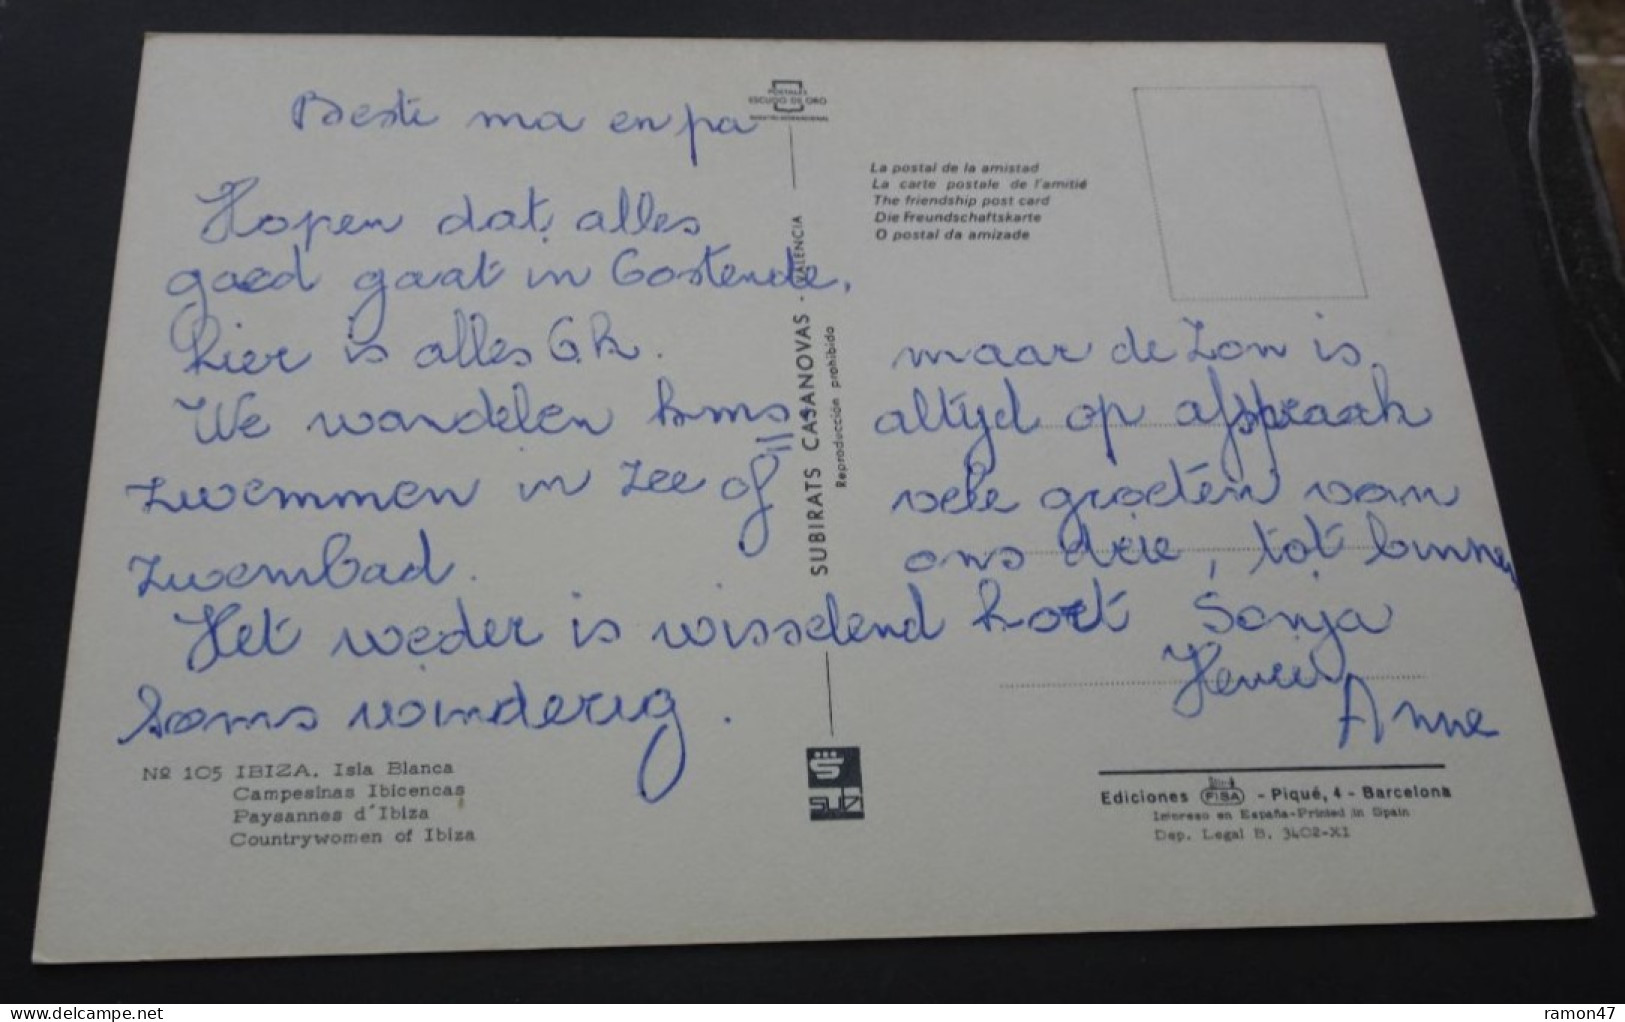 Beste ma en pa
Hopen dat alles
goed gaat in Oostende,
hier is alles O.k.
We wandelen soms
zwemmen in zee of
zwembad.
Het weder is wisselend
soms winderig.
maar de zon is
altijd op afspraak
vele groeten van
ons drie, tot binnen
kort Sonja
Anne
POSTALES
ESCUDO DE ORO
La postal de la amistad
La carte postale de l'amitié
The friendship post card
Die Freundschaftskarte
O postal da amizade
SUBIRATS CASANOVAS - VALENCIA
Reproducción prohibida
Nº 105 IBIZA. Isla Blanca
Campesinas Ibicencas
Paysannes d'Ibiza
Countrywomen of Ibiza
Ediciones FISA - Piqué, 4 - Barcelona
Impreso en España-Printed in Spain
Dep. Legal B. 3402-XI
delcampe.net
ramon47